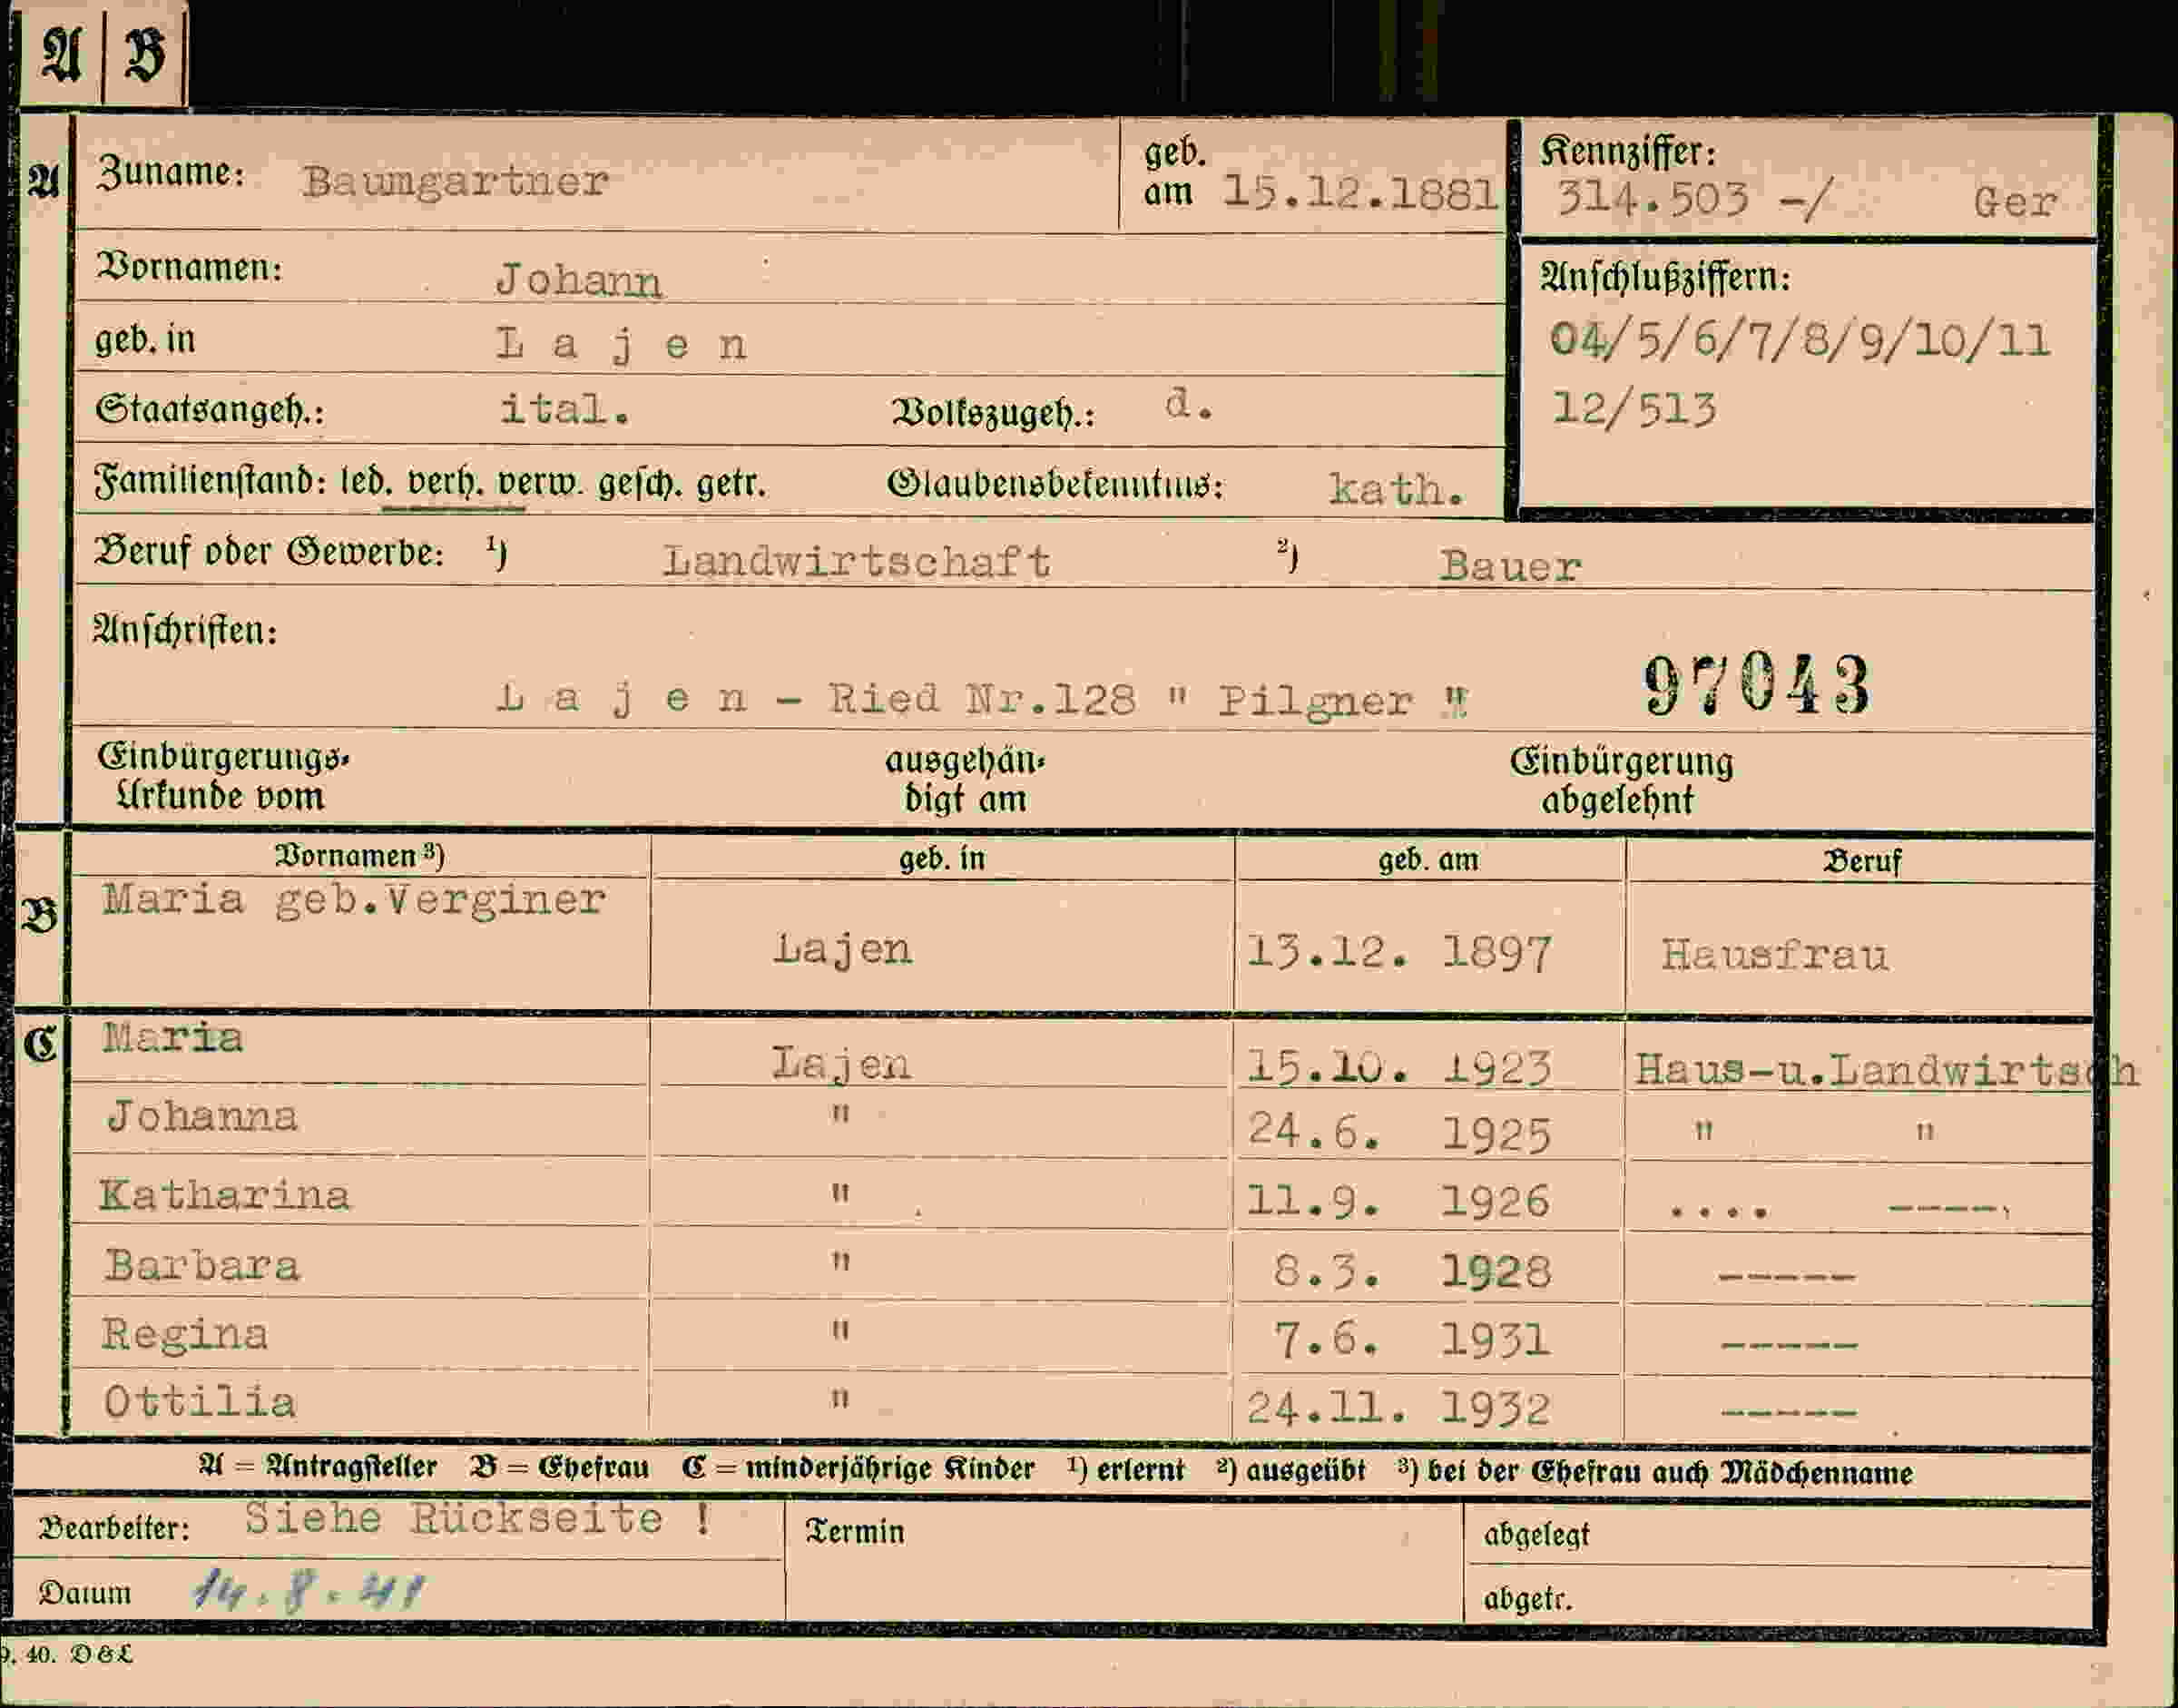 A B
A Zuname: Baumgartner geb. am 15.12.1881 Kennziffer: 314.503 -/ Ger
Vornamen: Johann
Anschlußziffern:
geb. in L a j e n 04/5/6/7/8/9/10/11
Staatsangeh.: ital. Volkszugeh.: d. 12/513
Familienstand: led. verh. verw. gesch. getr. Glaubensbekenntnis: kath.
Beruf oder Gewerbe: ¹) Landwirtschaft ²) Bauer
Anschriften:
L a j e n - Ried Nr.128 " Pilgner " 97043
Einbürgerungs-Urkunde vom ausgehän-digt am Einbürgerung abgelehnt
Vornamen ³) geb. in geb. am Beruf
B Maria geb.Verginer Lajen 13.12. 1897 Hausfrau
C Maria Lajen 15.10. 1923 Haus-u.Landwirtsch
Johanna " 24.6. 1925 " "
Katharina " 11.9. 1926 .... ----
Barbara " 8.3. 1928 -----
Regina " 7.6. 1931 -----
Ottilia " 24.11. 1932 -----
A = Antragsteller B = Ehefrau C = minderjährige Kinder ¹) erlernt ²) ausgeübt ³) bei der Ehefrau auch Mädchenname
Bearbeiter: Siehe Rückseite ! Termin abgelegt
Datum 14.8.41 abgetr.
9. 40. D&L